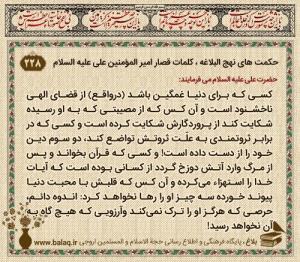 حکمت های نهج البلاغه ، کلمات قصار امیر المؤمنین علی علیه السلام
۲۲۸
حضرت علی علیه السلام می فرمایند:
کسی که برای دنیا غمگین باشد (درواقع) از قضای الهی
ناخشنود است و آن کس که از مصیبتی که به او رسیده
شکایت کند از پروردگارش شکایت کرده است و کسی که در
برابر ثروتمندی به علّت ثروتش تواضع کند، دو سوم دین
خود را از دست داده است! و کسی که قرآن بخواند و پس
از مرگ وارد آتش دوزخ گردد از کسانی بوده است که آیات
خدا را استهزاء می‌کرده و آن کس که قلبش با محبت دنیا
پیوند خورده سه چیز او را رها نخواهد کرد: اندوه دائم؛
حرصی که هرگز او را ترک نمی‌کند وآرزویی که هیچ گاه به
آن نخواهد رسید!
بلاغ ، پایگاه فرهنگی و اطلاع رسانی حجة الاسلام و المسلمین اروجی www.balaq.ir